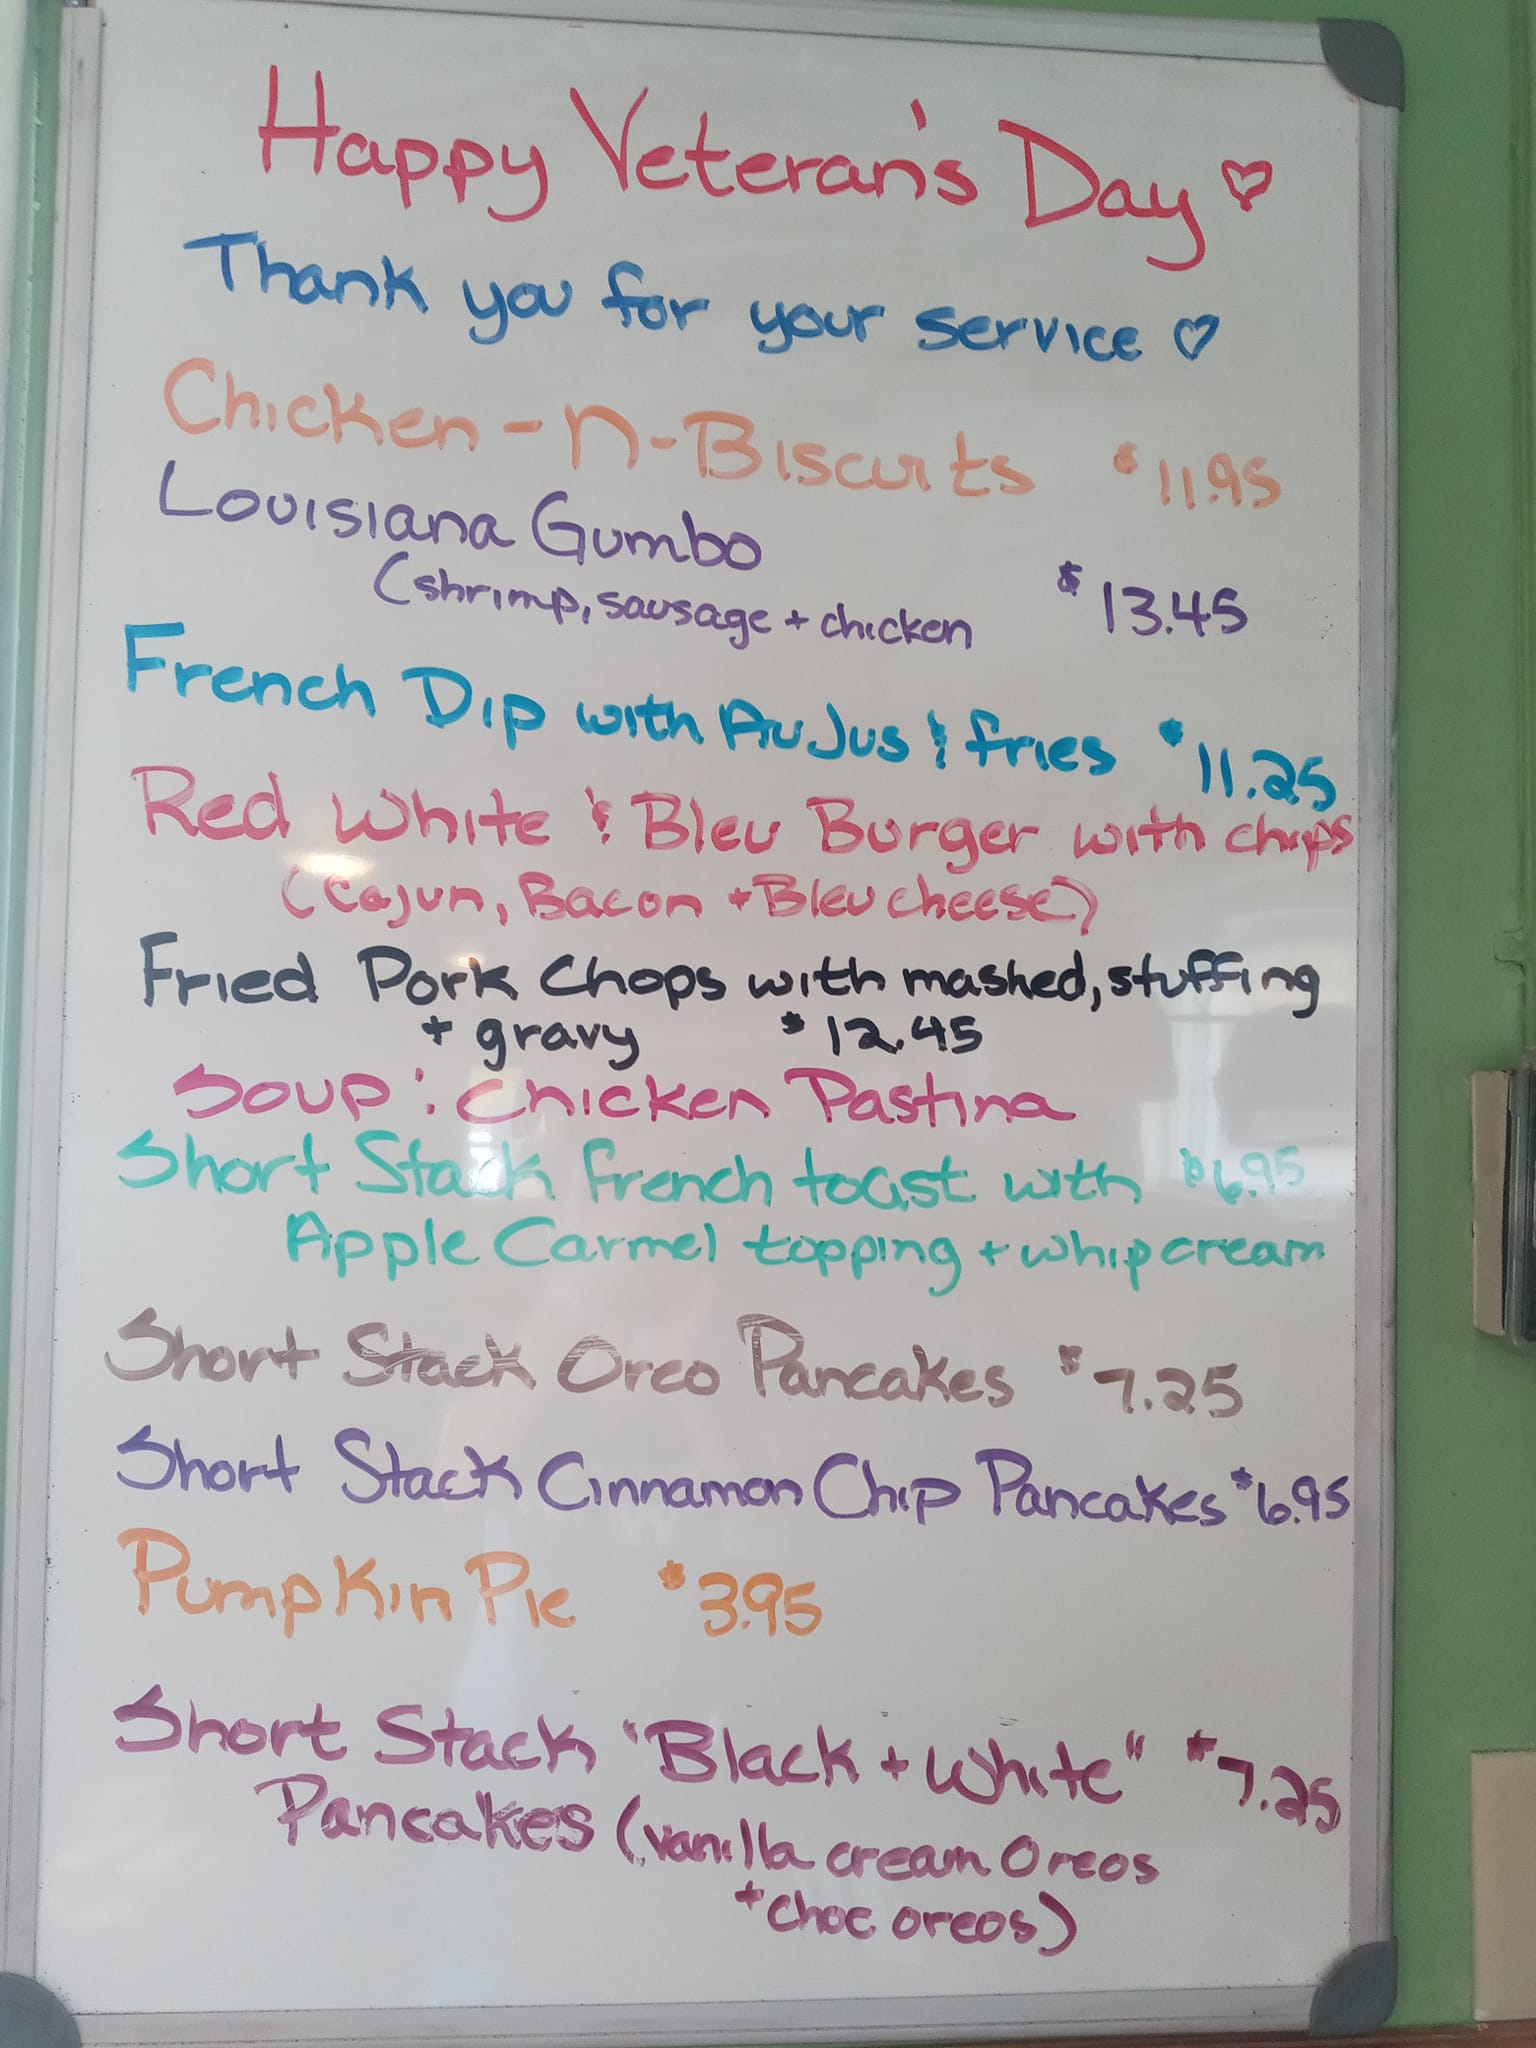 Happy Veteran's Day ♡
Thank you for your service ♡
Chicken-n-Biscuits $11.95
Louisiana Gumbo
(shrimp, sausage + chicken $13.45
French Dip with Au Jus & fries $11.25
Red White & Bleu Burger with chips
(Cajun, Bacon + Bleu cheese)
Fried Pork Chops with mashed, stuffing
+ gravy $12.45
Soup: Chicken Pastina
Short Stack french toast with $6.95
Apple Carmel topping + whip cream
Short Stack Oreo Pancakes $7.25
Short Stack Cinnamon Chip Pancakes $6.95
Pumpkin Pie $3.95
Short Stack "Black + White" $7.25
Pancakes (vanilla cream Oreos
+ choc oreos)